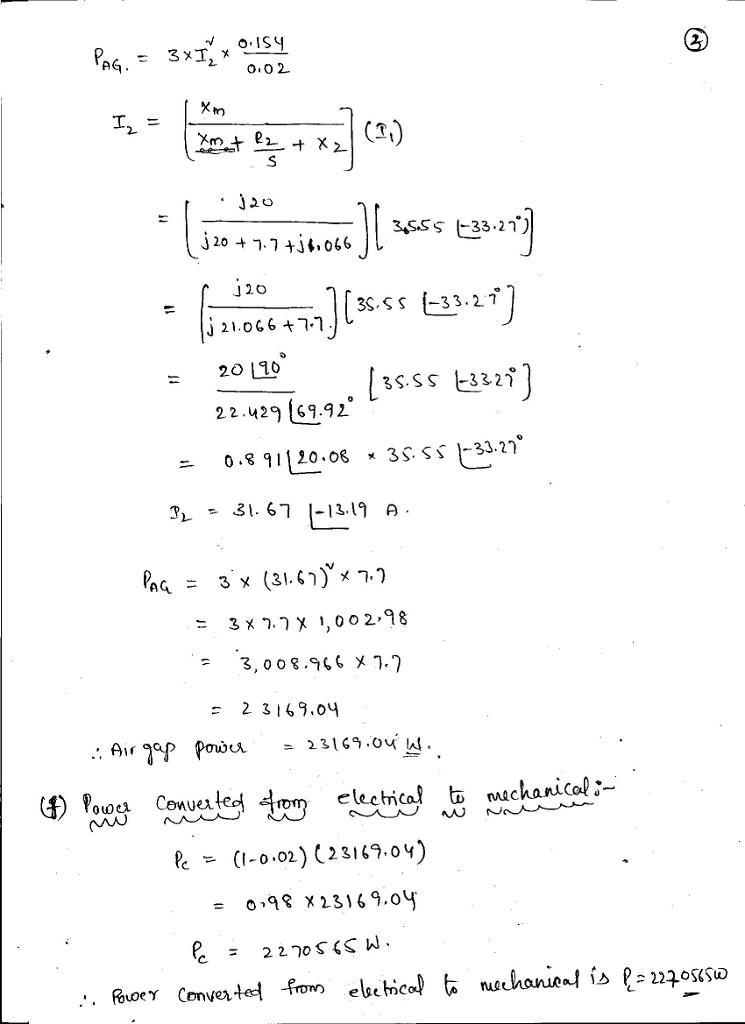 ②
P_AG. = 3×I₂² × 0.154 / 0.02
I₂ = [ Xm / (Xm + R₂/s + X₂) ] (I₁)
= [ j20 / (j20 + 7.7 + j1.066) ] [ 35.55 ∠-33.27° ]
= [ j20 / (j21.066 + 7.7) ] [ 35.55 ∠-33.27° ]
= 20 ∠90° / 22.429 ∠69.92° [ 35.55 ∠-33.27° ]
= 0.891 ∠20.08 × 35.55 ∠-33.27°
I₂ = 31.67 ∠-13.19 A.
P_AG = 3 × (31.67)² × 7.7
= 3 × 7.7 × 1,002.98
= 3,008.966 × 7.7
= 23169.04
∴ Air gap power = 23169.04 W.
(f) Power Converted from electrical to mechanical :-
Pc = (1-0.02) (23169.04)
= 0.98 × 23169.04
Pc = 2270565 W.
∴ Power Converted from electrical to mechanical is Pc = 2270565W